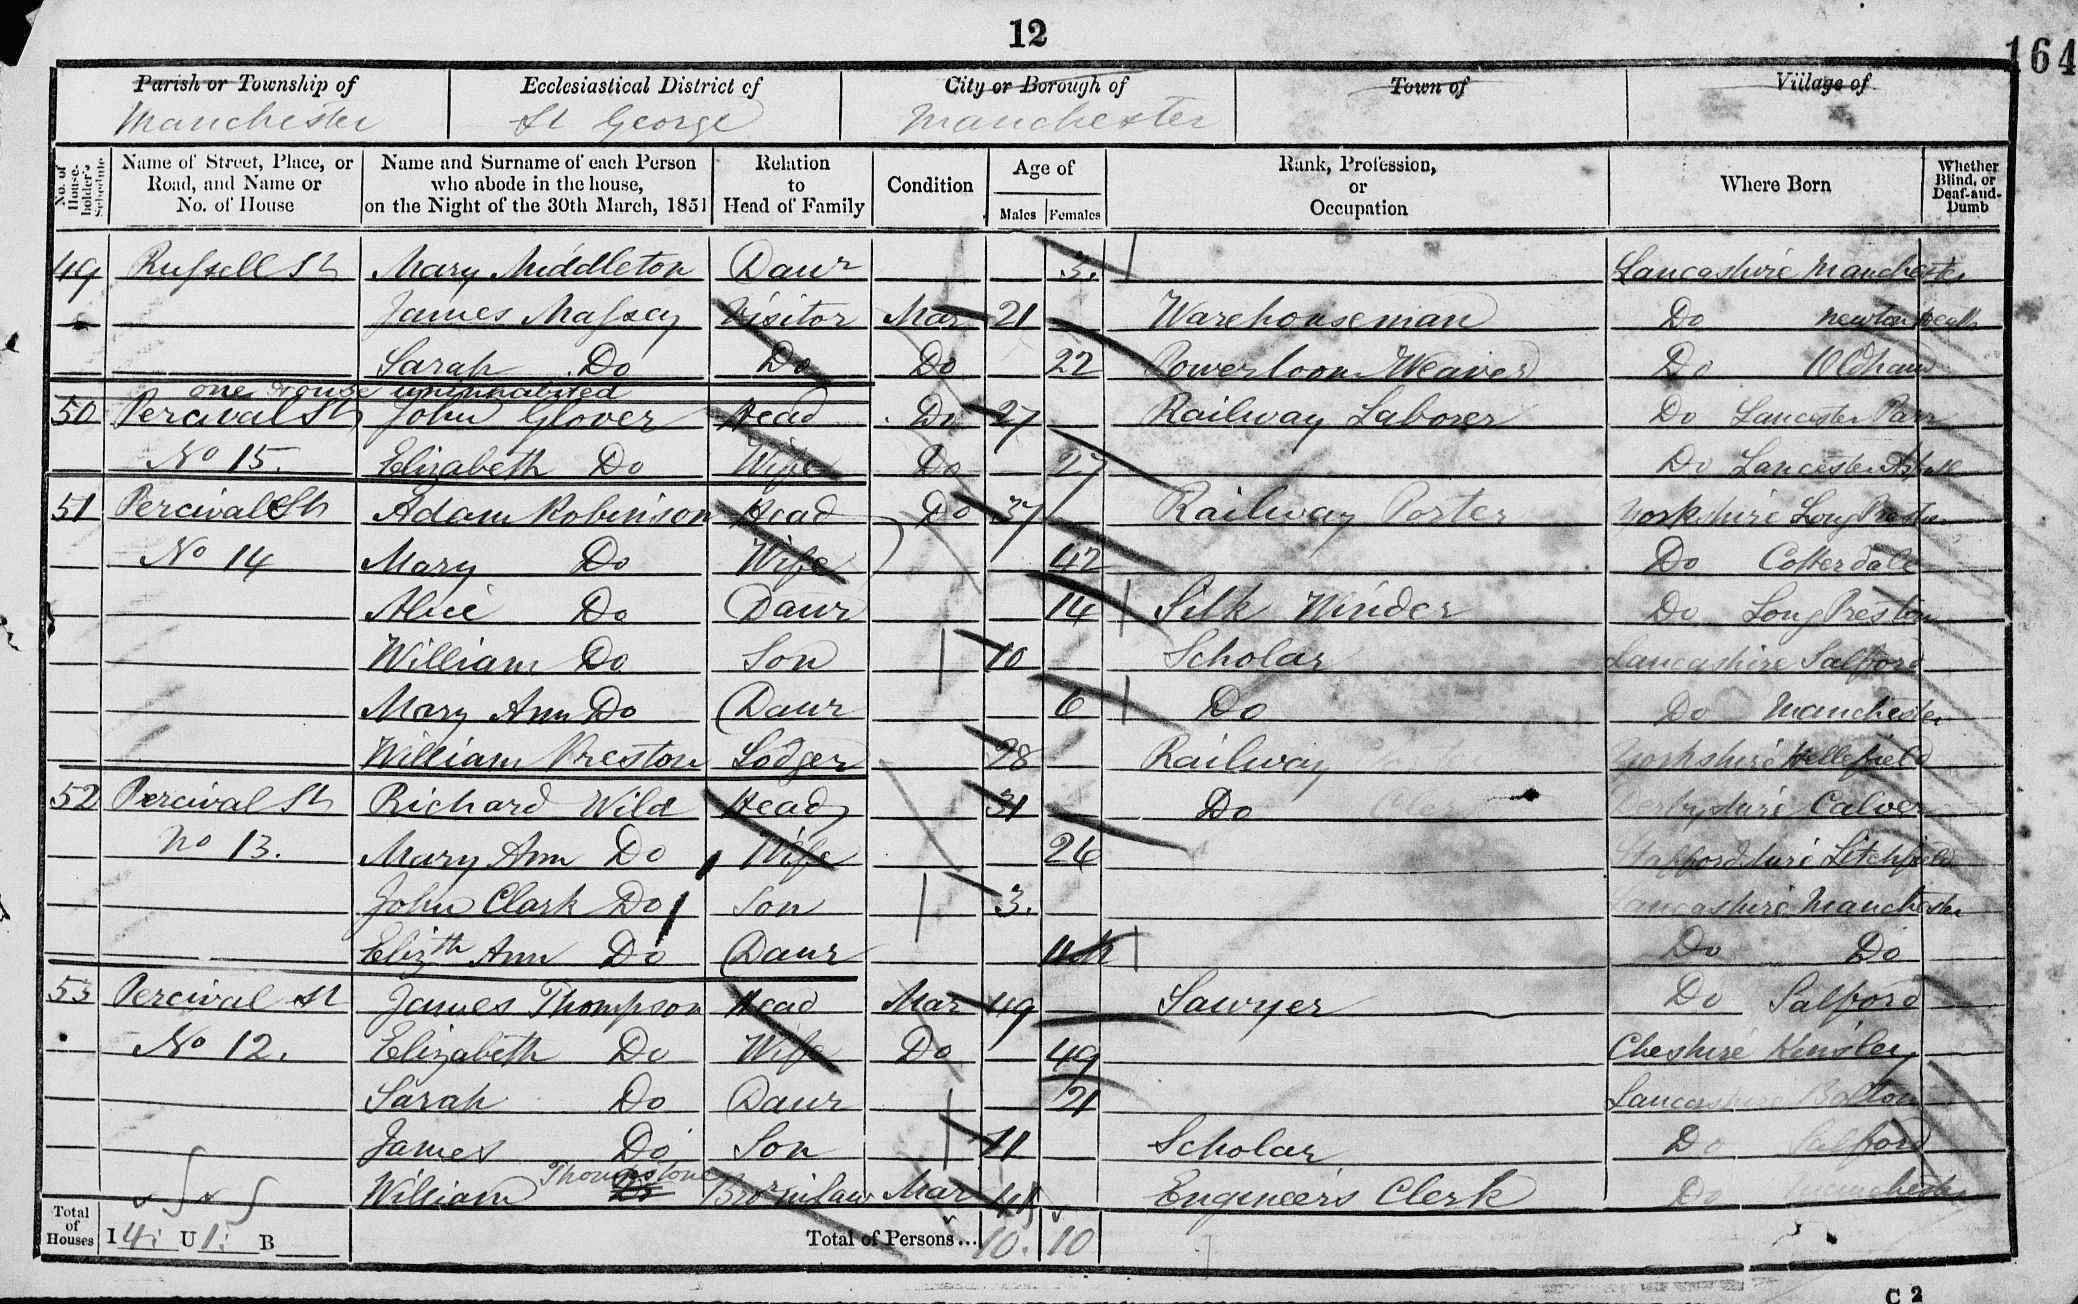 12
164
Parish or Township of Ecclesiastical District of City or Borough of Town of Village of
Manchester St George Manchester
No. of House-holder's Schedule Name of Street, Place, or Road, and Name or No. of House Name and Surname of each Person who abode in the house, on the Night of the 30th March, 1851 Relation to Head of Family Condition Age of Males Females Rank, Profession, or Occupation Where Born Whether Blind, or Deaf-and-Dumb
49 Russell St Mary Middleton Daur 3. Lancashire Manchester
James Massey Visitor Mar 21 Warehouseman Do Newton Heath
Sarah Do Do Do 22 Powerloom Weaver Do Oldham
one House uninhabited
50 Percival St John Glover Head Do 27 Railway Laborer Do Lancaster
No 15. Elizabeth Do Wife Do 27 Do Lancaster
51 Percival St Adam Robinson Head Do 37 Railway Porter Yorkshire Long Preston
No 14 Mary Do Wife 42 Do Cotterdale
Alice Do Daur 14 Silk Winder Do Long Preston
William Do Son 10 Scholar Lancashire Salford
Mary Ann Do Daur 6 Do Do Manchester
William Preston Lodger 28 Railway Yorkshire Hellefield
52 Percival St Richard Wild Head 31 Do Derbyshire Calver
No 13. Mary Ann Do Wife 26 Staffordshire Litchfield
John Clark Do Son 3. Lancashire Manchester
Elizth Ann Do Daur Do Do
53 Percival St James Thompson Head Mar 49 Sawyer Do Salford
No 12. Elizabeth Do Wife Do 49 Cheshire Kinsley
Sarah Do Daur 21 Lancashire Bolton
James Do Son 11 Scholar Do Salford
William Thompstone Do Bror in Law Mar Engineers Clerk Do Manchester
Total of Houses I 4 U 1 B Total of Persons... 10. 10
C 2